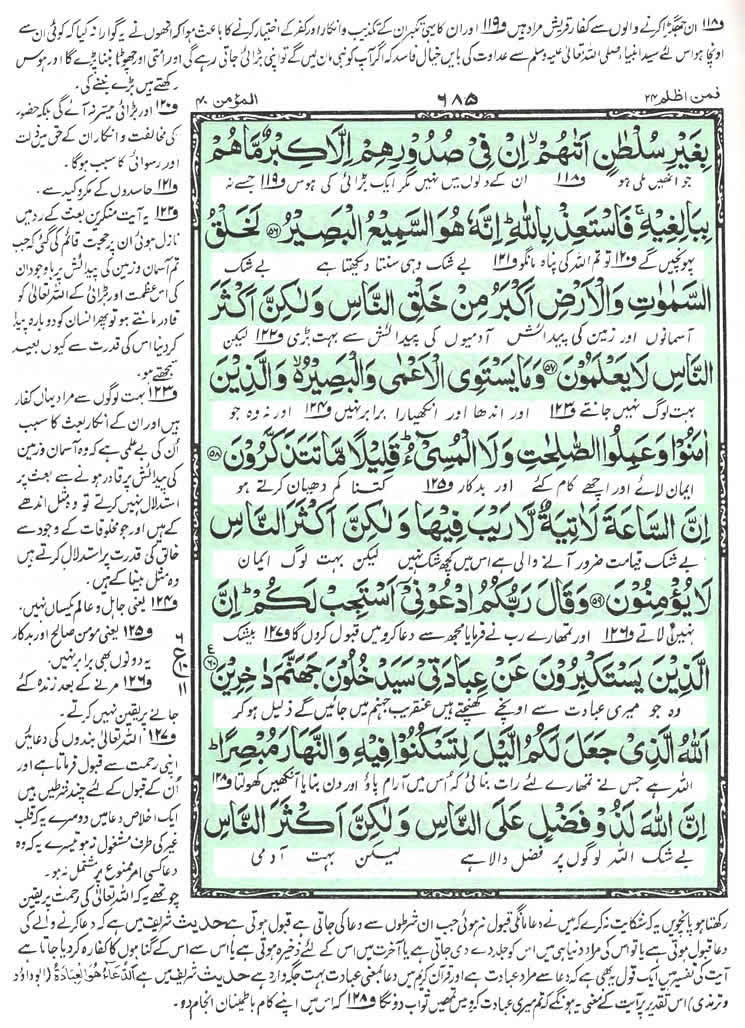 ف۱۱۸ ان جھگڑا کرنے والوں سے کفار قریش مراد ہیں ف۱۱۹ اور ان کا یہی تکبر ان کے تکذیب و انکار اور کفر کے اختیار کرنے کا باعث ہوا کہ انھوں نے یہ گوارا نہ کیا کہ کوئی ان سے
اونچا ہو اس لئے سید انبیاء صلی اللہ تعالیٰ علیہ وسلم سے عداوت کی بایں خیال فاسد کہ اگر آپ کو نبی مان لیں گے تو اپنی بڑائی جاتی رہے گی اور امتی اور چھوٹا بننا پڑے گا اور ہوس
رکھتے ہیں بڑے بننے کی۔
فمن اظلم ۲۴
۶۸۵
المؤمن ۴۰
بِغَيْرِ سُلْطٰنٍ اَتٰىهُمْ ۙ اِنْ فِیْ صُدُوْرِهِمْ اِلَّا كِبْرٌ مَّا هُمْ
جو انھیں ملی ہو ف۱۱۸ ان کے دلوں میں نہیں مگر ایک بڑائی کی ہوس ف۱۱۹ جسے نہ
بِبَالِغِيْهِ ۚ فَاسْتَعِذْ بِاللّٰهِ ؕ اِنَّهٗ هُوَ السَّمِيْعُ الْبَصِيْرُ ﴿۵۶﴾ لَخَلْقُ
پہونچیں گے ف۱۲۰ تو تم اللہ کی پناہ مانگو ف۱۲۱ بے شک وہی سنتا دیکھتا ہے بے شک
السَّمٰوٰتِ وَالْاَرْضِ اَكْبَرُ مِنْ خَلْقِ النَّاسِ وَلٰكِنَّ اَكْثَرَ
آسمانوں اور زمین کی پیدائش آدمیوں کی پیدائش سے بہت بڑی ف۱۲۲ لیکن
النَّاسِ لَا يَعْلَمُوْنَ ﴿۵۷﴾ وَمَا يَسْتَوِی الْاَعْمٰى وَالْبَصِيْرُ ۙ وَالَّذِيْنَ
بہت لوگ نہیں جانتے ف۱۲۳ اور اندھا اور انکھیارا برابر نہیں ف۱۲۴ اور نہ وہ جو
اٰمَنُوْا وَعَمِلُوا الصّٰلِحٰتِ وَلَا الْمُسِیْٓءُ ؕ قَلِيْلًا مَّا تَتَذَكَّرُوْنَ ﴿۵۸﴾
ایمان لائے اور اچھے کام کئے اور بدکار ف۱۲۵ کتنا کم دھیان کرتے ہو
اِنَّ السَّاعَةَ لَاٰتِيَةٌ لَّا رَيْبَ فِيْهَا وَلٰكِنَّ اَكْثَرَ النَّاسِ
بے شک قیامت ضرور آنے والی ہے اس میں کچھ شک نہیں لیکن بہت لوگ ایمان
لَا يُؤْمِنُوْنَ ﴿۵۹﴾ وَقَالَ رَبُّكُمُ ادْعُوْنِیْٓ اَسْتَجِبْ لَكُمْ ؕ اِنَّ
نہیں لاتے ف۱۲۶ اور تمھارے رب نے فرمایا مجھ سے دعا کرو میں قبول کروں گا ف۱۲۷ بیشک
الَّذِيْنَ يَسْتَكْبِرُوْنَ عَنْ عِبَادَتِیْ سَيَدْخُلُوْنَ جَهَنَّمَ دٰخِرِيْنَ ﴿۶۰﴾
وہ جو میری عبادت سے اونچے کھنچتے ہیں عنقریب جہنم میں جائیں گے ذلیل ہو کر
اَللّٰهُ الَّذِیْ جَعَلَ لَكُمُ الَّيْلَ لِتَسْكُنُوْا فِيْهِ وَالنَّهَارَ مُبْصِرًا ؕ
اللہ ہے جس نے تمھارے لئے رات بنائی کہ اس میں آرام پاؤ اور دن بنایا آنکھیں کھولتا ف۱۲۸
اِنَّ اللّٰهَ لَذُوْ فَضْلٍ عَلَى النَّاسِ وَلٰكِنَّ اَكْثَرَ النَّاسِ
بے شک اللہ لوگوں پر فضل والا ہے لیکن بہت آدمی
ف۱۲۰ اور بڑائی میسر نہ آئے گی بلکہ حضور
کی مخالفت و انکار ان کے حق میں ذلت
اور رسوائی کا سبب ہوگا۔
ف۱۲۱ حاسدوں کے مکر و کید سے۔
ف۱۲۲ یہ آیت منکرین بعث کے رد میں
نازل ہوئی ان پر حجت قائم کی گئی کہ جب
تم آسمان و زمین کی پیدائش پر باوجود ان
کی اس عظمت اور بڑائی کے اللہ تعالیٰ کو
قادر مانتے ہو تو پھر انسان کو دوبارہ پیدا
کر دینا اس کی قدرت سے کیوں بعید
سمجھتے ہو۔
ف۱۲۳ بہت لوگوں سے مراد یہاں کفار
ہیں اور ان کے انکار بعث کا سبب
ان کی بے علمی ہے کہ وہ آسمان و زمین
کی پیدائش پر قادر ہونے سے بعث پر
استدلال نہیں کرتے تو وہ مثل اندھے
کے ہیں اور جو مخلوقات کے وجود سے
خالق کی قدرت پر استدلال کرتے ہیں
وہ مثل بینا کے ہیں۔
ف۱۲۴ یعنی جاہل و عالم یکساں نہیں۔
ف۱۲۵ یعنی مؤمن صالح اور بدکار
یہ دونوں بھی برابر نہیں۔
ف۱۲۶ مرنے کے بعد زندہ کئے
جانے پر یقین نہیں کرتے۔
ف۱۲۷ اللہ تعالیٰ بندوں کی دعائیں
اپنی رحمت سے قبول فرماتا ہے اور
ان کے قبول کے لئے چند شرطیں ہیں
ایک اخلاص دعا میں دوسرے یہ کہ قلب
غیر کی طرف مشغول نہ ہو تیسرے یہ کہ وہ
دعا کسی امر ممنوع پر مشتمل نہ ہو۔
چوتھے یہ کہ اللہ تعالیٰ کی رحمت پر یقین
رکھتا ہو پانچویں یہ کہ شکایت نہ کرے کہ میں نے دعا مانگی قبول نہ ہوئی جب ان شرطوں سے دعا کی جاتی ہے قبول ہوتی ہے حدیث شریف میں ہے کہ دعا کرنے والے کی
دعا قبول ہوتی ہے یا تو اس کی مراد دنیا ہی میں اس کو جلد دے دی جاتی ہے یا آخرت میں اس کے لئے ذخیرہ ہوتی ہے یا اس سے اس کے گناہوں کا کفارہ کر دیا جاتا ہے
آیت کی تفسیر میں ایک قول یہ بھی ہے کہ دعا سے مراد عبادت ہے اور قرآن کریم میں دعا بمعنی عبادت بہت جگہ وارد ہے حدیث شریف میں ہے اَلدُّعَاءُ هُوَ الْعِبَادَةُ (ابوداؤد
و ترمذی) اس تقدیر پر آیت کے معنی یہ ہونگے کہ تم میری عبادت کرو میں تمھیں ثواب دونگا ف۱۲۸ کہ اس میں اپنے کام باطمینان انجام دو۔